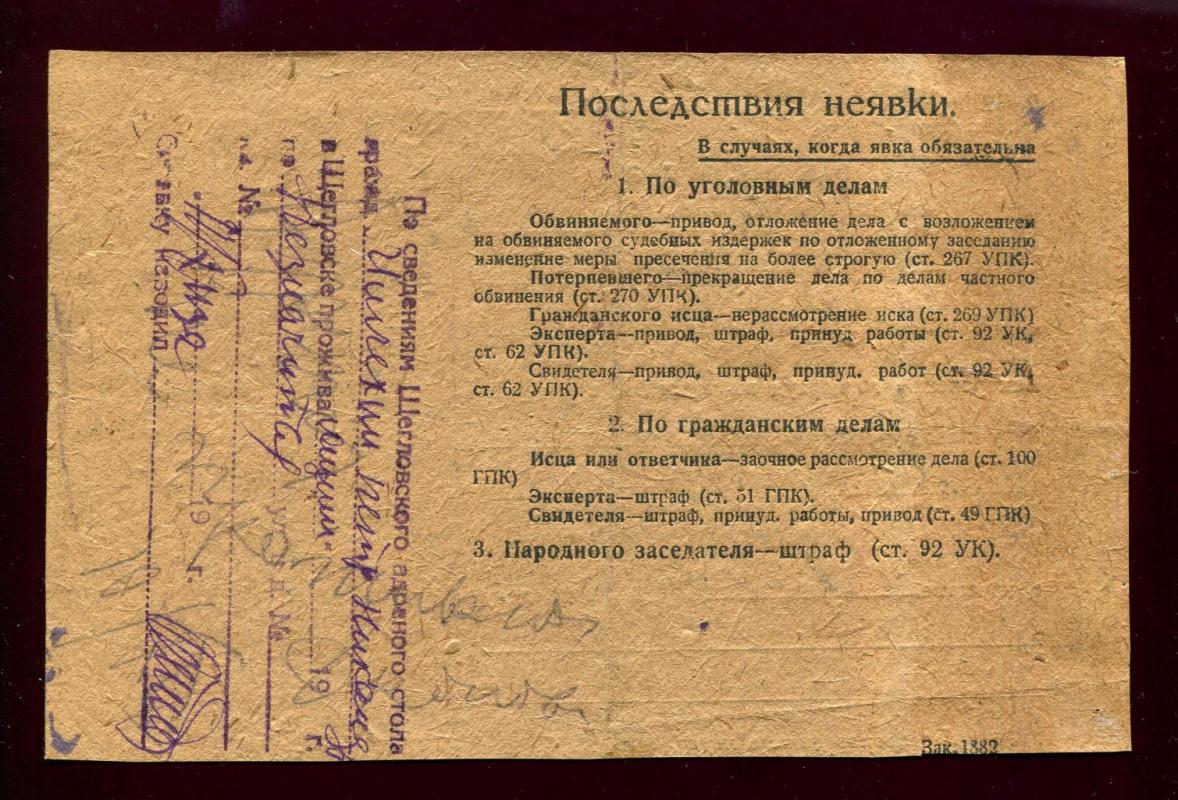 Последствия неявки.
В случаях, когда явка обязательна
1. По уголовным делам
Обвиняемого—привод, отложение дела с возложением
на обвиняемого судебных издержек по отложенному заседанию
изменение меры пресечения на более строгую (ст. 267 УПК).
Потерпевшего—прекращение дела по делам частного
обвинения (ст. 270 УПК).
Гражданского исца—нерассмотрение иска (ст. 269 УПК)
Эксперта—привод, штраф, принуд работы (ст. 92 УК,
ст. 62 УПК).
Свидетеля—привод, штраф, принуд. работ (ст. 92 УК,
ст. 62 УПК).
2. По гражданским делам
Исца или ответчика—заочное рассмотрение дела (ст. 100
ГПК)
Эксперта—штраф (ст. 51 ГПК).
Свидетеля—штраф, принуд. работы, привод (ст. 49 ГПК)
3. Народного заседателя—штраф (ст. 92 УК).
Зак. 1882
По сведениям Щегловского адресного стола
гражд.
в Щегловске прожива 19 г.
по ул. д. №
кв. №
19 г.
Справку наводил